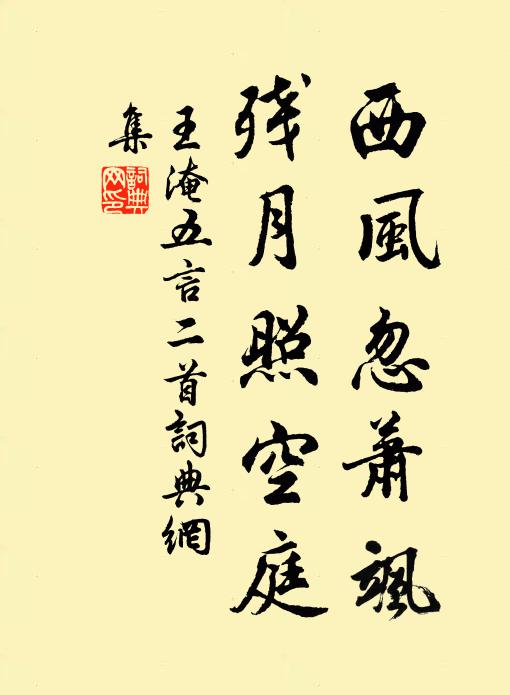 西風忽蕭颯
残月照空庭
王淹五言二首詞典網
集
詞典網印